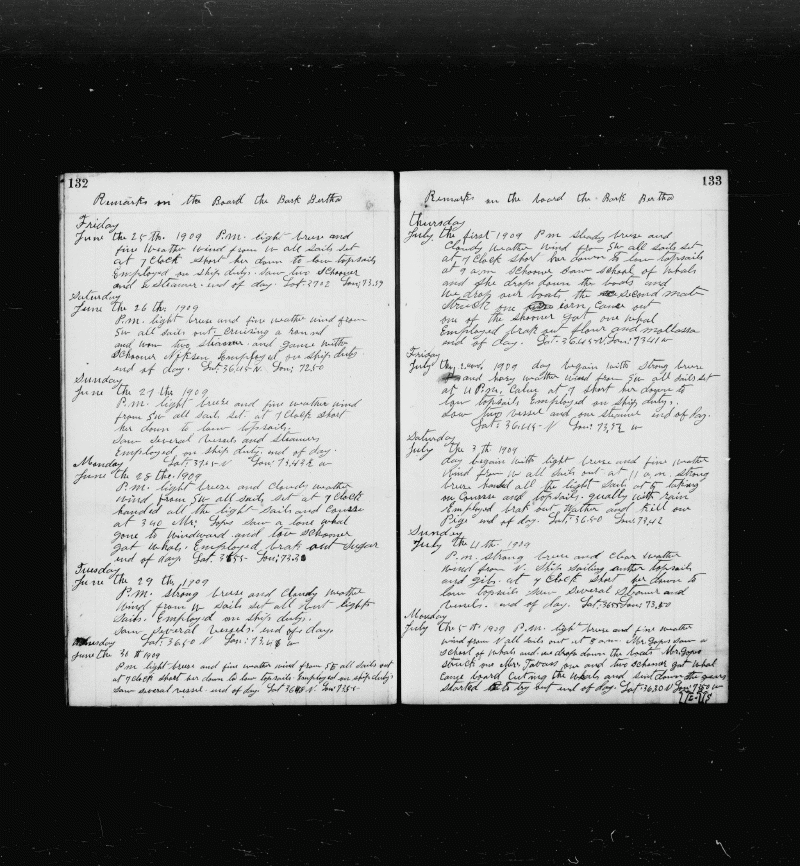 132
Remarks on the Board the Bark Bertha
Friday
June the 25 th. 1909 P.M. light breze and
fine Weather Wind from W all sails set
at 7 Clock short her down to low topsails
Employed on ship duty. saw two schooner
and a steamer. end of day. Lat. 3702 Lon; 73.59
Saturday
June the 26 th. 1909
P.M. light breze and fine weather wind from
SW all sails out. Cruising a round
and two and Game with
Schooner Employed on ship duty
end of day. Lat; 36.45 N. Lon; 7250
Sunday
June the 27 th. 1909
P.M. light breze and fine weather wind
from SW all sails set. at 7 Clock short
her down to low topsails.
Saw several Vessels and steamers
Employed on ship duty. end of day.
Monday Lat; 37.15 N Lon; W
June the 28 the. 1909
P.M. light breze and Cloudy weather
wind. from SW all sails set at 7 Clock
handed all the light sails and Course
at 340 Mr; Gopes saw a lone whal
gone to windward and low schooner
gat whals. Employed brak out Sugar
end of day. Lat. Lon;
Tuesday
June the 29 th. 1909
P.M. Strong breze and Cloudy weather
Wind from W sails set all but light
Sails. Employed on ship duty.
Saw several Vessels. end of day
Wednesday Lat: 36.50 N Lon: W
June the 30 th 1909
P.M light breze and fine weather wind from SE all sails out
at 7 Clock short her down to low topsails. Employed on ship duty.
saw several vessel. end of day. Lat: N. Lon;
133
Remarks on the board the Bark Bertha
thursday
July, the first 1909 P M steady breze and
Cloudy weather Wind from SW all sails set
at 7 Clock short her down to low topsails
at 9 a.m schooner saw school of whals
and she drops down the boats and
We drop our boats the second mate
Struck one
one of the skooner gat one whal
Employed brak out flour and mollassa
end of day. Lat. 36.45 N. Lon; 73.41 W
Friday
July the 2nd. 1909 day begain with strong breze
and weather wind from SW all sails set
at 4 P.M. at 7 short her down to
low topsails Employed on ship duty.
Saw vessel and one steamer end of day.
Lat: Lon: W
Saturday
July the 3 th 1909
day begain with light breze and fine weather
Wind from W all sails out at 11 a.m. strong
breze handed all the light sails at 5 taking
in Course and topsails. with rain
Employed brak out Wather and kill our
Pigs end of day. Lat: 36.50 Lon: 73,42
Sunday
July the 4 th. 1909
P.M. strong breze and Clear weather
Wind from N. Ship Sailing topsails
and gibs. at 7 Clock short her down to
low topsails saw several steamer and
Vessels. end of day. Lat: Lon: 73,50
Monday
July the 5 th. 1909 P.M. light breze and fine weather
wind from N all sails out at 8 a.m. Mr. Gopes saw a
school of whals and we drops down the boats Mr. Gopes
struck one Mr. Tavars one and two schooner gat whal
Came board Cuting the whals and send down the gears
started to try but end of day. Lat: 36.30 N Lon: W